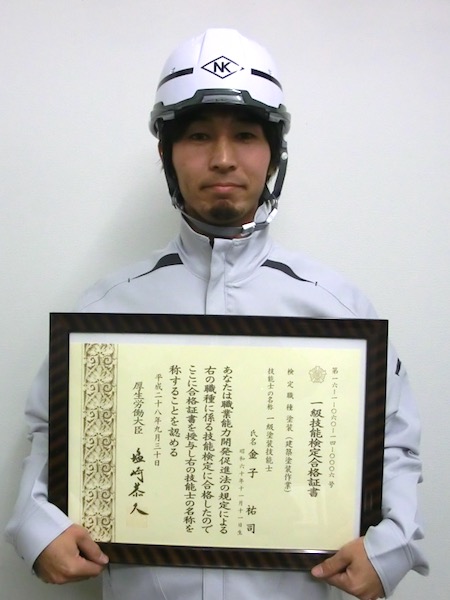 NK
第一六-一-〇六〇-一四-〇〇〇六号
一級技能検定合格証書
検定職種 塗装(建築塗装作業)
技能士の名称 一級塗装技能士
氏名 金子 祐司
昭和六十年十一月十一日生
あなたは職業能力開発促進法の規定による
右の職種に係る技能検定に合格したので
ここに合格証書を授与し右の技能士の名称を
称することを認める
平成二十八年九月三十日
厚生労働大臣 塩崎恭久